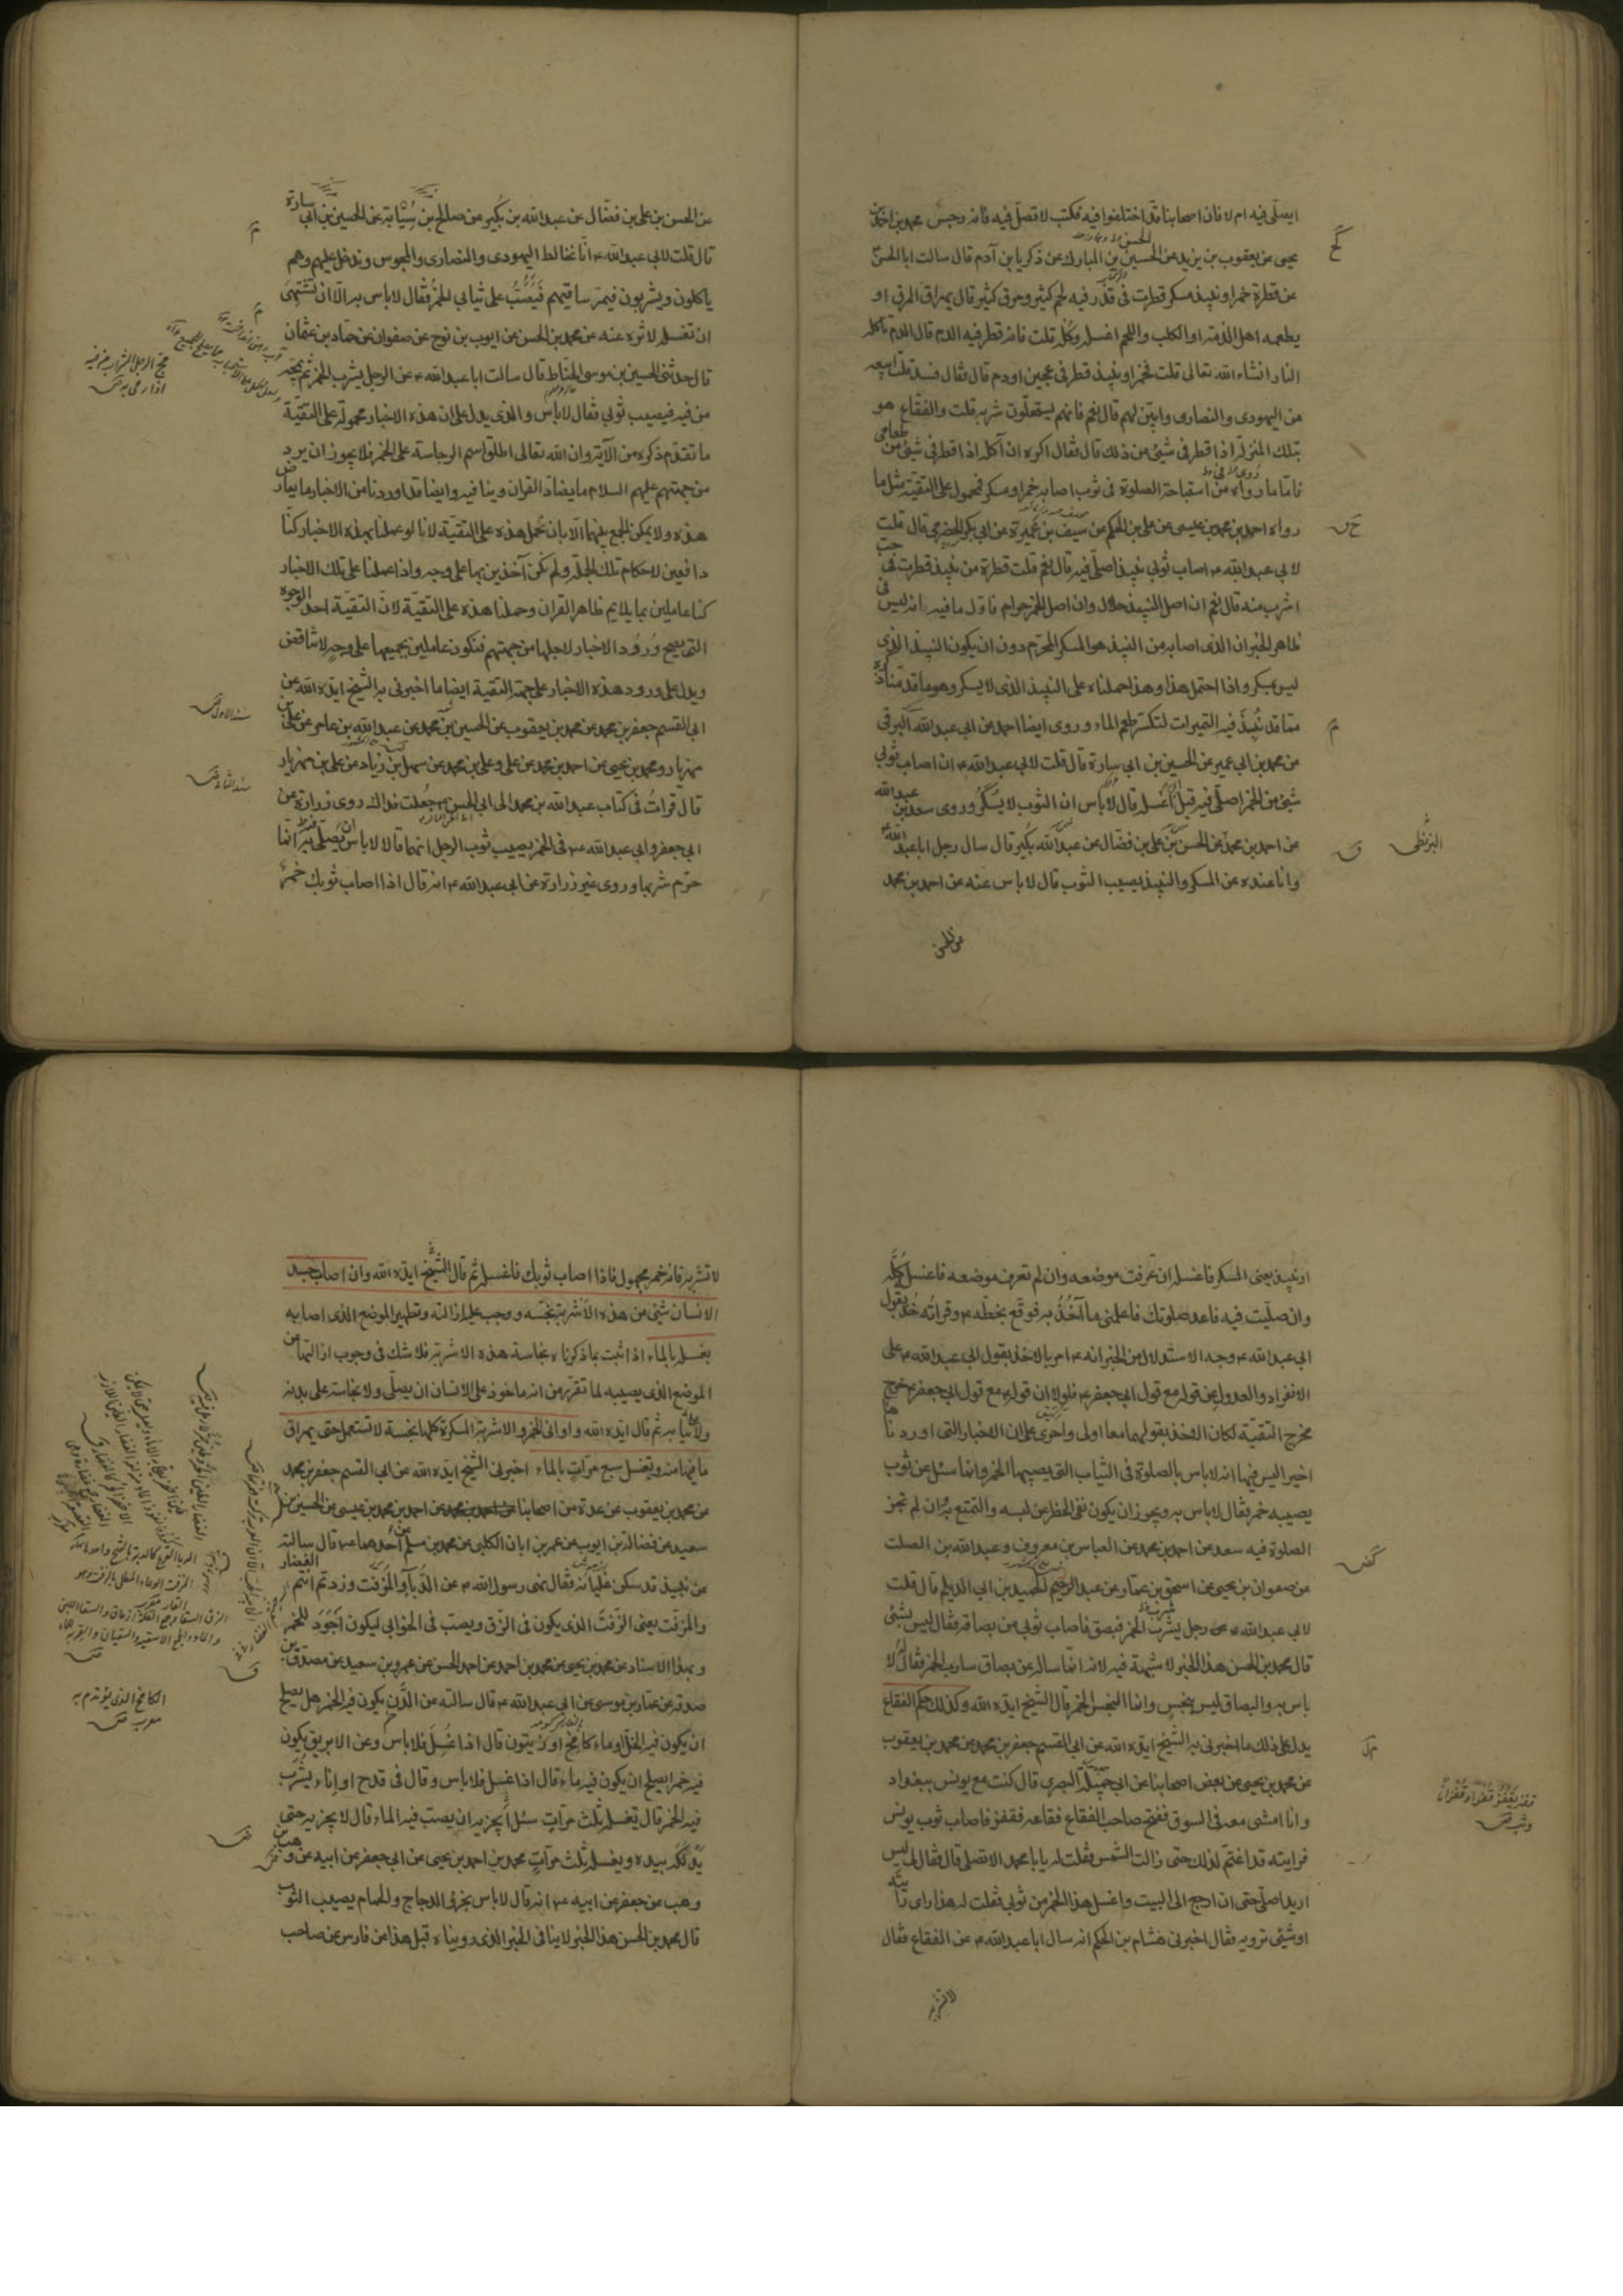 ايصلّى فيه ام لا فان اصحابنا قد اختلفوا فيه فكتب لا تصلّ فيه فانه رجس محمد بن احمد بن
يحيى عن يعقوب بن يزيد عن الحسين بن المبارك عن زكريا بن آدم قال سالت ابا الحسن
عن قطرة خمر او نبيذ مسكر قطرت فى قدر فيه لحم كثير ومرق كثير قال يهراق المرق او
يطعمه اهل الذمة او الكلب واللحم اغسله وكله قلت فانه قطر فيه الدم قال الدم تاكله
النار انشاء الله تعالى قلت فخمر او نبيذ قطر فى عجين او دم قال فقال فسد قلت ابيعه
من اليهودى والنصارى وابيّن لهم قال نعم فانهم يستحلّون شربه قلت والفقاع هو
بتلك المنزلة اذا قطر فى شيئ من ذلك قال فقال اكره ان آكله اذا قطر فى شيئ من طعامى
فاما ما رواه من استباحة الصلوة فى ثوب اصابه خمر او مسكر فمحمول على التقية مثل ما
رواه احمد بن محمد بن عيسى عن على بن الحكم عن سيف بن عميرة عن ابى بكر الحضرمى قال قلت
لابى عبد الله ع اصاب ثوبى نبيذ اصلّى فيه قال نعم قلت قطرة من نبيذ قطرت فى حب
اشرب منه قال نعم ان اصل النبيذ حلال وان اصل الخمر حرام فاول ما فيه انه ليس فى
ظاهر الخبر ان الذى اصابه من النبيذ هو المسكر المحرم دون ان يكون النبيذ الذى
ليس بمسكر واذا احتمل هذا وهذا حملناه على النبيذ الذى لا يسكر وهو ما قدمنا ذكره
مما قد نبذ فيه التميرات لتكسر طعم الماء وروى ايضا احمد عن ابى عبد الله البرقى
عن محمد بن ابى عمير عن الحسين بن ابى سارة قال قلت لابى عبد الله ع ان اصاب ثوبى
شيئ من الخمر اصلّى فيه قبل ان اغسله قال لا باس ان الثوب لا يسكر وروى سعد بن عبد الله
عن احمد بن محمد عن الحسن بن على بن فضال عن عبد الله بكير قال سال رجل ابا عبد الله ع
وانا عنده عن المسكر والنبيذ يصيب الثوب قال لا باس عنه عن احمد بن محمد
البزنطى
عن الحسن
عن الحسن بن على بن فضّال عن عبد الله بن بكير عن صالح بن سيابة عن الحسين بن ابى سارة
قال قلت لابى عبد الله ع انّا نخالط اليهودى والنصارى والمجوس وندخل عليهم وهم
ياكلون ويشربون فيمرّ ساقيهم فيصبّ على ثيابى الخمر فقال لا باس به الّا ان تشتهى
ان تغسل لاثره عنه عن محمد بن الحسن عن ايوب بن نوح عن صفوان عن حماد بن عثمان
قال حدثنى الحسين بن موسى الحنّاط قال سالت ابا عبد الله ع عن الرجل يشرب الخمر ثم يمجّه
من فيه فيصيب ثوبى فقال لا باس والذى يدل على ان هذه الاخبار محمولة على التقيّة
ما تقدّم ذكره من الآية وان الله تعالى اطلق اسم الرجاسة على الخمر فلا يجوز ان يرد
من جهتهم عليهم السلام ما يضادّ القران وينافيه وايضا قد اوردنا من الاخبار ما يعارض
هذه ولا يمكن الجمع بينهما الّا بان نحمل هذه على التقيّة لانا لو عملنا بهذه الاخبار كنّا
دافعين لاحكام تلك الجملة ولم نكن آخذين بها على وجه واذا عملنا على تلك الاخبار
كنا عاملين بما يلايم ظاهر القران وحملنا هذه على التقيّة لانّ التقيّة احد الوجوه
التى يصح ورود الاخبار لاجلها من جهتهم فنكون عاملين بجميعها على وجه لا تناقض
ويدل على ورود هذه الاخبار على جهة التقية ايضا ما اخبرنى به الشيخ ايده الله عن
ابى القسم جعفر بن محمد عن محمد بن يعقوب عن الحسين بن محمد عن عبد الله بن عامر عن على بن
مهزيار ومحمد بن يحيى عن احمد بن محمد عن على وعلى بن محمد عن سهل بن زياد عن على بن مهزيار
قال قرات فى كتاب عبد الله بن محمد الى ابى الحسن ع جعلت فداك روى زرارة عن
ابى جعفر وابى عبد الله ع فى الخمر يصيب ثوب الرجل انهما قالا لا باس ان يصلّى فيه انما
حرّم شربها وروى غير زرارة عن ابى عبد الله ع انه قال اذا اصاب ثوبك خمر
مج الرجل الشراب من فيه
اذا رمى به
سند الاول
سند الثانى
او نبيذ يعنى المسكر فاغسله ان عرفت موضعه وان لم تعرف موضعه فاغسل كلّه
وان صلّيت فيه فاعد صلوتك فاعلمنى ما آخذ به فوقّع بخطّه ع وقراته خذ بقول
ابى عبد الله ع وجه الاستدلال من الخبر انه ع امر بالاخذ بقول ابى عبد الله ع على
الانفراد والعدول عن قوله مع قول ابى جعفر ع فلولا ان قوله مع قول ابى جعفر ع خرج
مخرج التقيّة لكان الاخذ بقولهما معا اولى واحرى على ان الاخبار التى اوردناها
اخيرا ليس فيها انه لا باس بالصلوة فى الثياب التى يصيبها الخمر وانما سئل عن ثوب
يصيبه خمر فقال لا باس به ويجوز ان يكون نفى الحظر عن لبسه والتمتع به وان لم تجز
الصلوة فيه سعد عن احمد بن محمد عن العباس بن معروف وعبد الله بن الصلت
عن صفوان بن يحيى عن اسحق بن عمار عن عبد الحميد بن ابى الديلم قال قلت
لابى عبد الله ع رجل يشرب الخمر فبصق فاصاب ثوبى من بصاقه فقال ليس بشئ
قال محمد بن الحسن هذا الخبر لا شبهة فيه لانه انما ساله عن بصاق شارب الخمر فقال لا
باس به والبصاق ليس بنجس وانما النجس الخمر قال الشيخ ايده الله وكذلك حكم الفقاع
يدل على ذلك ما اخبرنى به الشيخ ايده الله عن ابى القسم جعفر بن محمد عن محمد بن يعقوب
عن محمد بن يحيى عن بعض اصحابنا عن ابى جميلة البصرى قال كنت مع يونس ببغداد
وانا امشى معه فى السوق ففتح صاحب الفقاع فقاعه فقفز فاصاب ثوب يونس
فرايته قد اغتم لذلك حتى زالت الشمس فقلت له يا ابا محمد الا تصلى قال فقال لى ليس
اريد اصلى حتى ان ارجع الى البيت واغسل هذا الخمر من ثوبى فقلت له هذا راى رايته
او شيئ ترويه فقال اخبرنى هشام بن الحكم انه سال ابا عبد الله ع عن الفقاع فقال
قفز يقفز قفزا وقفزانا
وثب
لا تشربه
لا تشربه فانه خمر مجهول فاذا اصاب ثوبك فاغسله ثم قال الشيخ ايده الله وان اصاب جسد
الانسان شيئ من هذه الاشربة نجّسه ووجب عليه ازالته وتطهير الموضع الذى اصابه
بغسله بالماء اذا ثبت بما ذكرناه نجاسة هذه الاشربة فلا شك فى وجوب ازالتها عن
الموضع الذى يصيبه لما تقرّر من انه ماخوذ على الانسان ان يصلّى ولا نجاسة على بدنه
ولا ثيابه ثم قال ايده الله واوانى الخمر والاشربة المسكرة كلها نجسة لا تستعمل حتى يهراق
ما فيها منه وتغسل سبع مرات بالماء اخبرنى الشيخ ايده الله عن ابى القسم جعفر بن محمد
عن محمد بن يعقوب عن عدة من اصحابنا عن احمد بن محمد بن عيسى عن الحسين بن
سعيد عن فضالة بن ايوب عن عمر بن ابان الكلبى عن محمد بن مسلم عن احدهما ع قال سالته
عن نبيذ قد سكن غليانه فقال نهى رسول الله ص عن الدباء والمزفت وزدتم انتم الغضار
والمزفت يعنى الزفت الذى يكون فى الزق ويصب فى الخوابى ليكون اجود للخمر
وبهذا الاسناد عن محمد بن يحيى عن محمد بن احمد عن احمد بن الحسن عن عمرو بن سعيد عن مصدق بن
صدقه عن عمار بن موسى عن ابى عبد الله ع قال سالته عن الدن يكون فيه الخمر هل يصلح
ان يكون فيه الخل او ماء كامخ او زيتون قال اذا غسل فلا باس وعن الابريق يكون
فيه خمر ايصلح ان يكون فيه ماء قال اذا غسل فلا باس وقال فى قدح او اناء يشرب
فيه الخمر قال تغسله ثلث مرات سئل ايجزيه ان يصب فيه الماء قال لا يجزيه حتى
يدلكه بيده ويغسله ثلث مرات محمد بن احمد بن يحيى عن ابى جعفر عن ابيه عن وهب بن
وهب عن جعفر عن ابيه ع انه قال لا باس بخرؤ الدجاج والحمام يصيب الثوب
قال محمد بن الحسن هذا الخبر لا ينافى الخبر الذى رويناه قبل هذا عن فارس عن صاحب
الكامخ الذى يؤتدم به
معرب